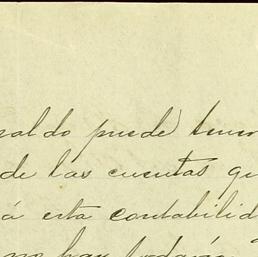 saldo puede tener
de las cuentas qu
á esta contabilid
no hay todavía